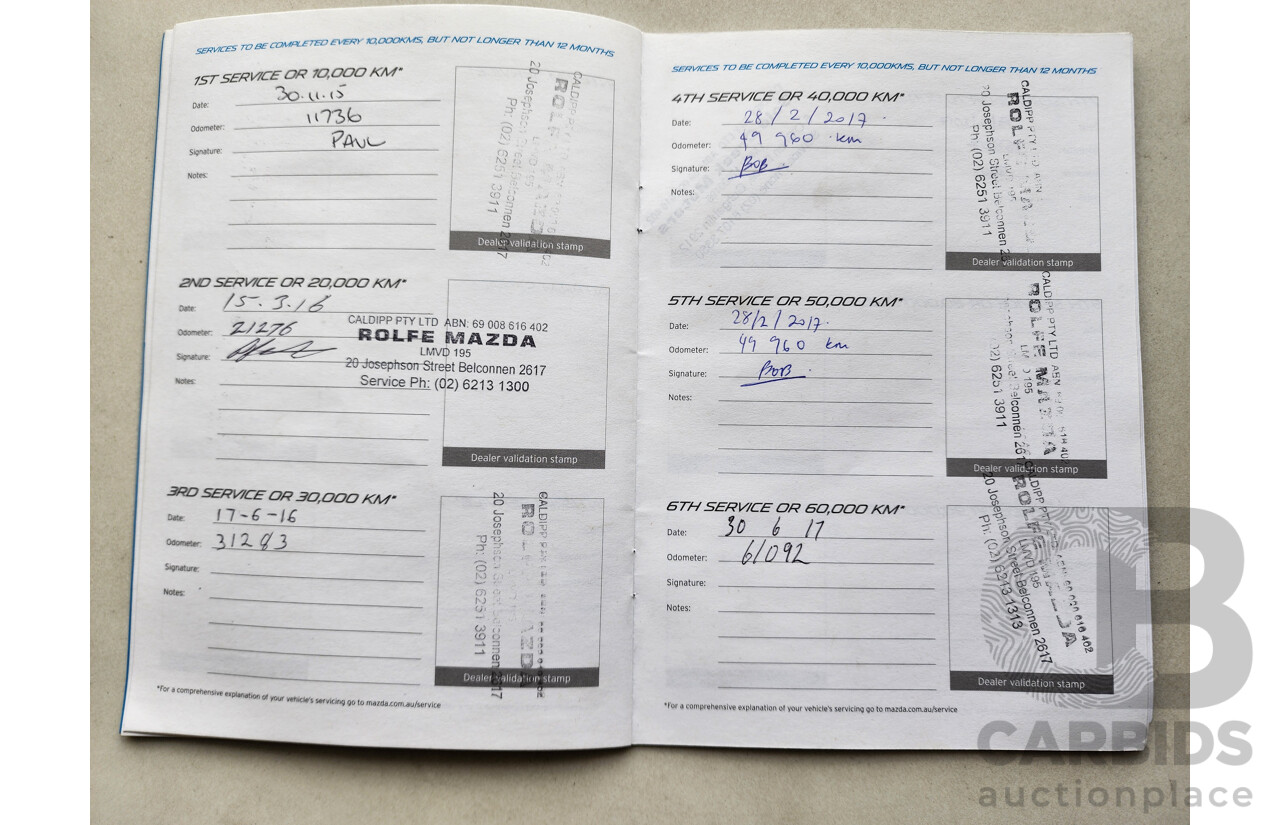 SERVICES TO BE COMPLETED EVERY 10,000KMS, BUT NOT LONGER THAN 12 MONTHS
1ST SERVICE OR 10,000 KM*
Date: 30.11.15
Odometer: 11736
Signature: PAUL
Notes:
20 Josephson Street Belconnen 2617
Ph: (02) 6251 3911
Dealer validation stamp
2ND SERVICE OR 20,000 KM*
Date: 15.3.16
Odometer: 21276
Signature:
Notes:
CALDIPP PTY LTD ABN: 69 008 616 402
ROLFE MAZDA
LMVD 195
20 Josephson Street Belconnen 2617
Service Ph: (02) 6213 1300
Dealer validation stamp
3RD SERVICE OR 30,000 KM*
Date: 17-6-16
Odometer: 31283
Signature:
Notes:
20 Josephson Street Belconnen 2617
Ph: (02) 6251 3911
Dealer validation stamp
*For a comprehensive explanation of your vehicle's servicing go to mazda.com.au/service
SERVICES TO BE COMPLETED EVERY 10,000KMS, BUT NOT LONGER THAN 12 MONTHS
4TH SERVICE OR 40,000 KM*
Date: 28/2/2017
Odometer: 49 960 km
Signature: BOB
Notes:
CALDIPP PTY LTD ABN
LMVD 195
20 Josephson Street Belconnen
Ph: (02) 6251 3911
Dealer validation stamp
5TH SERVICE OR 50,000 KM*
Date: 28/2/2017
Odometer: 49 960 km
Signature: BOB
Notes:
CALDIPP PTY LTD ABN
ROLFE MAZDA
Dealer validation stamp
6TH SERVICE OR 60,000 KM*
Date: 30 6 17
Odometer: 61092
Signature:
Notes:
ROLFE
LMVD 195
20 Josephson Street Belconnen 2617
Ph: (02) 6213 1313
Dealer validation stamp
*For a comprehensive explanation of your vehicle's servicing go to mazda.com.au/service
B
CARBIDS
auctionplace